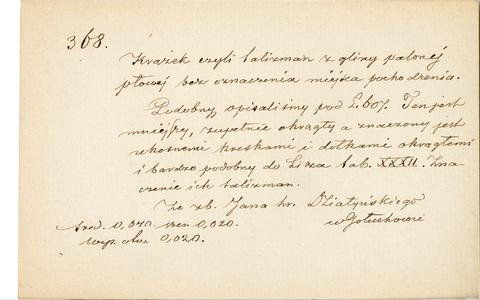 368.
Krążek czyli talizman z gliny palonej
płowej bez oznaczenia miejsca pochodzenia.
Podobny opisaliśmy pod L. 607. Ten jest
mniejszy, zupełnie okrągły a znaczony jest
ukośnemi kreskami i dołkami okrągłemi
i bardzo podobny do Lisza tab. XXXII. Zna-
czenie ich talizman.
Ze zb. Jana hr. Działyńskiego
w Gołuchowie
Śred. 0,040. wen 0,020.
wys. obw. 0,020.